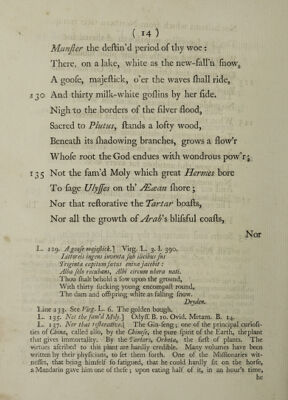 ( 14 )
Munſter the deſtin'd period of thy woe :
There, on a lake, white as the new-fall'n ſnow,
A gooſe, majeſtick, o'er the waves ſhall ride,
130 And thirty milk-white goſlins by her ſide.
Nigh to the borders of the ſilver flood,
Sacred to Plutus, ſtands a lofty wood,
Beneath its ſhadowing branches, grows a flow'r
Whoſe root the God endues with wondrous pow'r;
135 Not the fam'd Moly which great Hermes bore
To ſage Ulyſſes on th' Ææan ſhore ;
Nor that reſtorative the Tartar boaſts,
Nor all the growth of Arab's bliſsful coaſts,
Nor
L. 129. A gooſe majeſtick.] Virg. L. 3. l. 390.
Littoreis ingens inventa ſub ilicibus ſus
Triginta capitum fœtus enixa jacebit :
Alba ſolo recubans, Albi circum ubera nati.
Thou ſhalt behold a ſow upon the ground,
With thirty ſucking young encompaſt round,
The dam and offspring white as falling ſnow.
Dryden.
Line 133. See Virg. L. 6. The golden bough.
L. 135. Not the fam'd Moly.] Odyſſ. B. 10. Ovid. Metam. B. 14.
L. 137. Nor that reſtorative.] The Gin-ſeng; one of the principal curioſi-
ties of China, called alſo, by the Chineſe, the pure ſpirit of the Earth, the plant
that gives immortality. By the Tartars, Orhota, the firſt of plants. The
virtues aſcribed to this plant are hardly credible. Many volumes have been
written by their phyſicians, to ſet them forth. One of the Miſſionaries wit-
neſſes, that being himſelf ſo fatigued, that he could hardly ſit on the horſe,
a Mandarin gave him one of theſe ; upon eating half of it, in an hour's time,
he